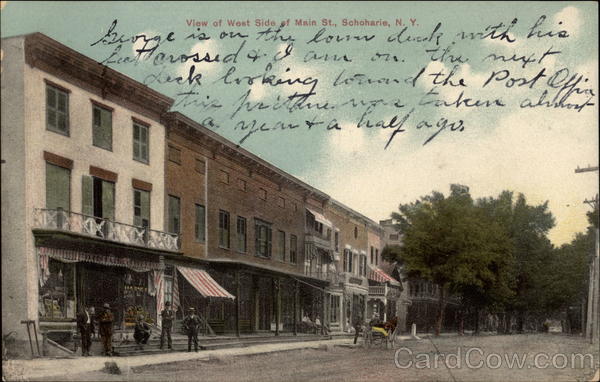 View of West Side of Main St., Schoharie, N. Y.
George is on the lower deck with his
feet crossed & I am on the next
deck looking toward the Post Office
this picture was taken almost
a year & a half ago.
CardCow.com